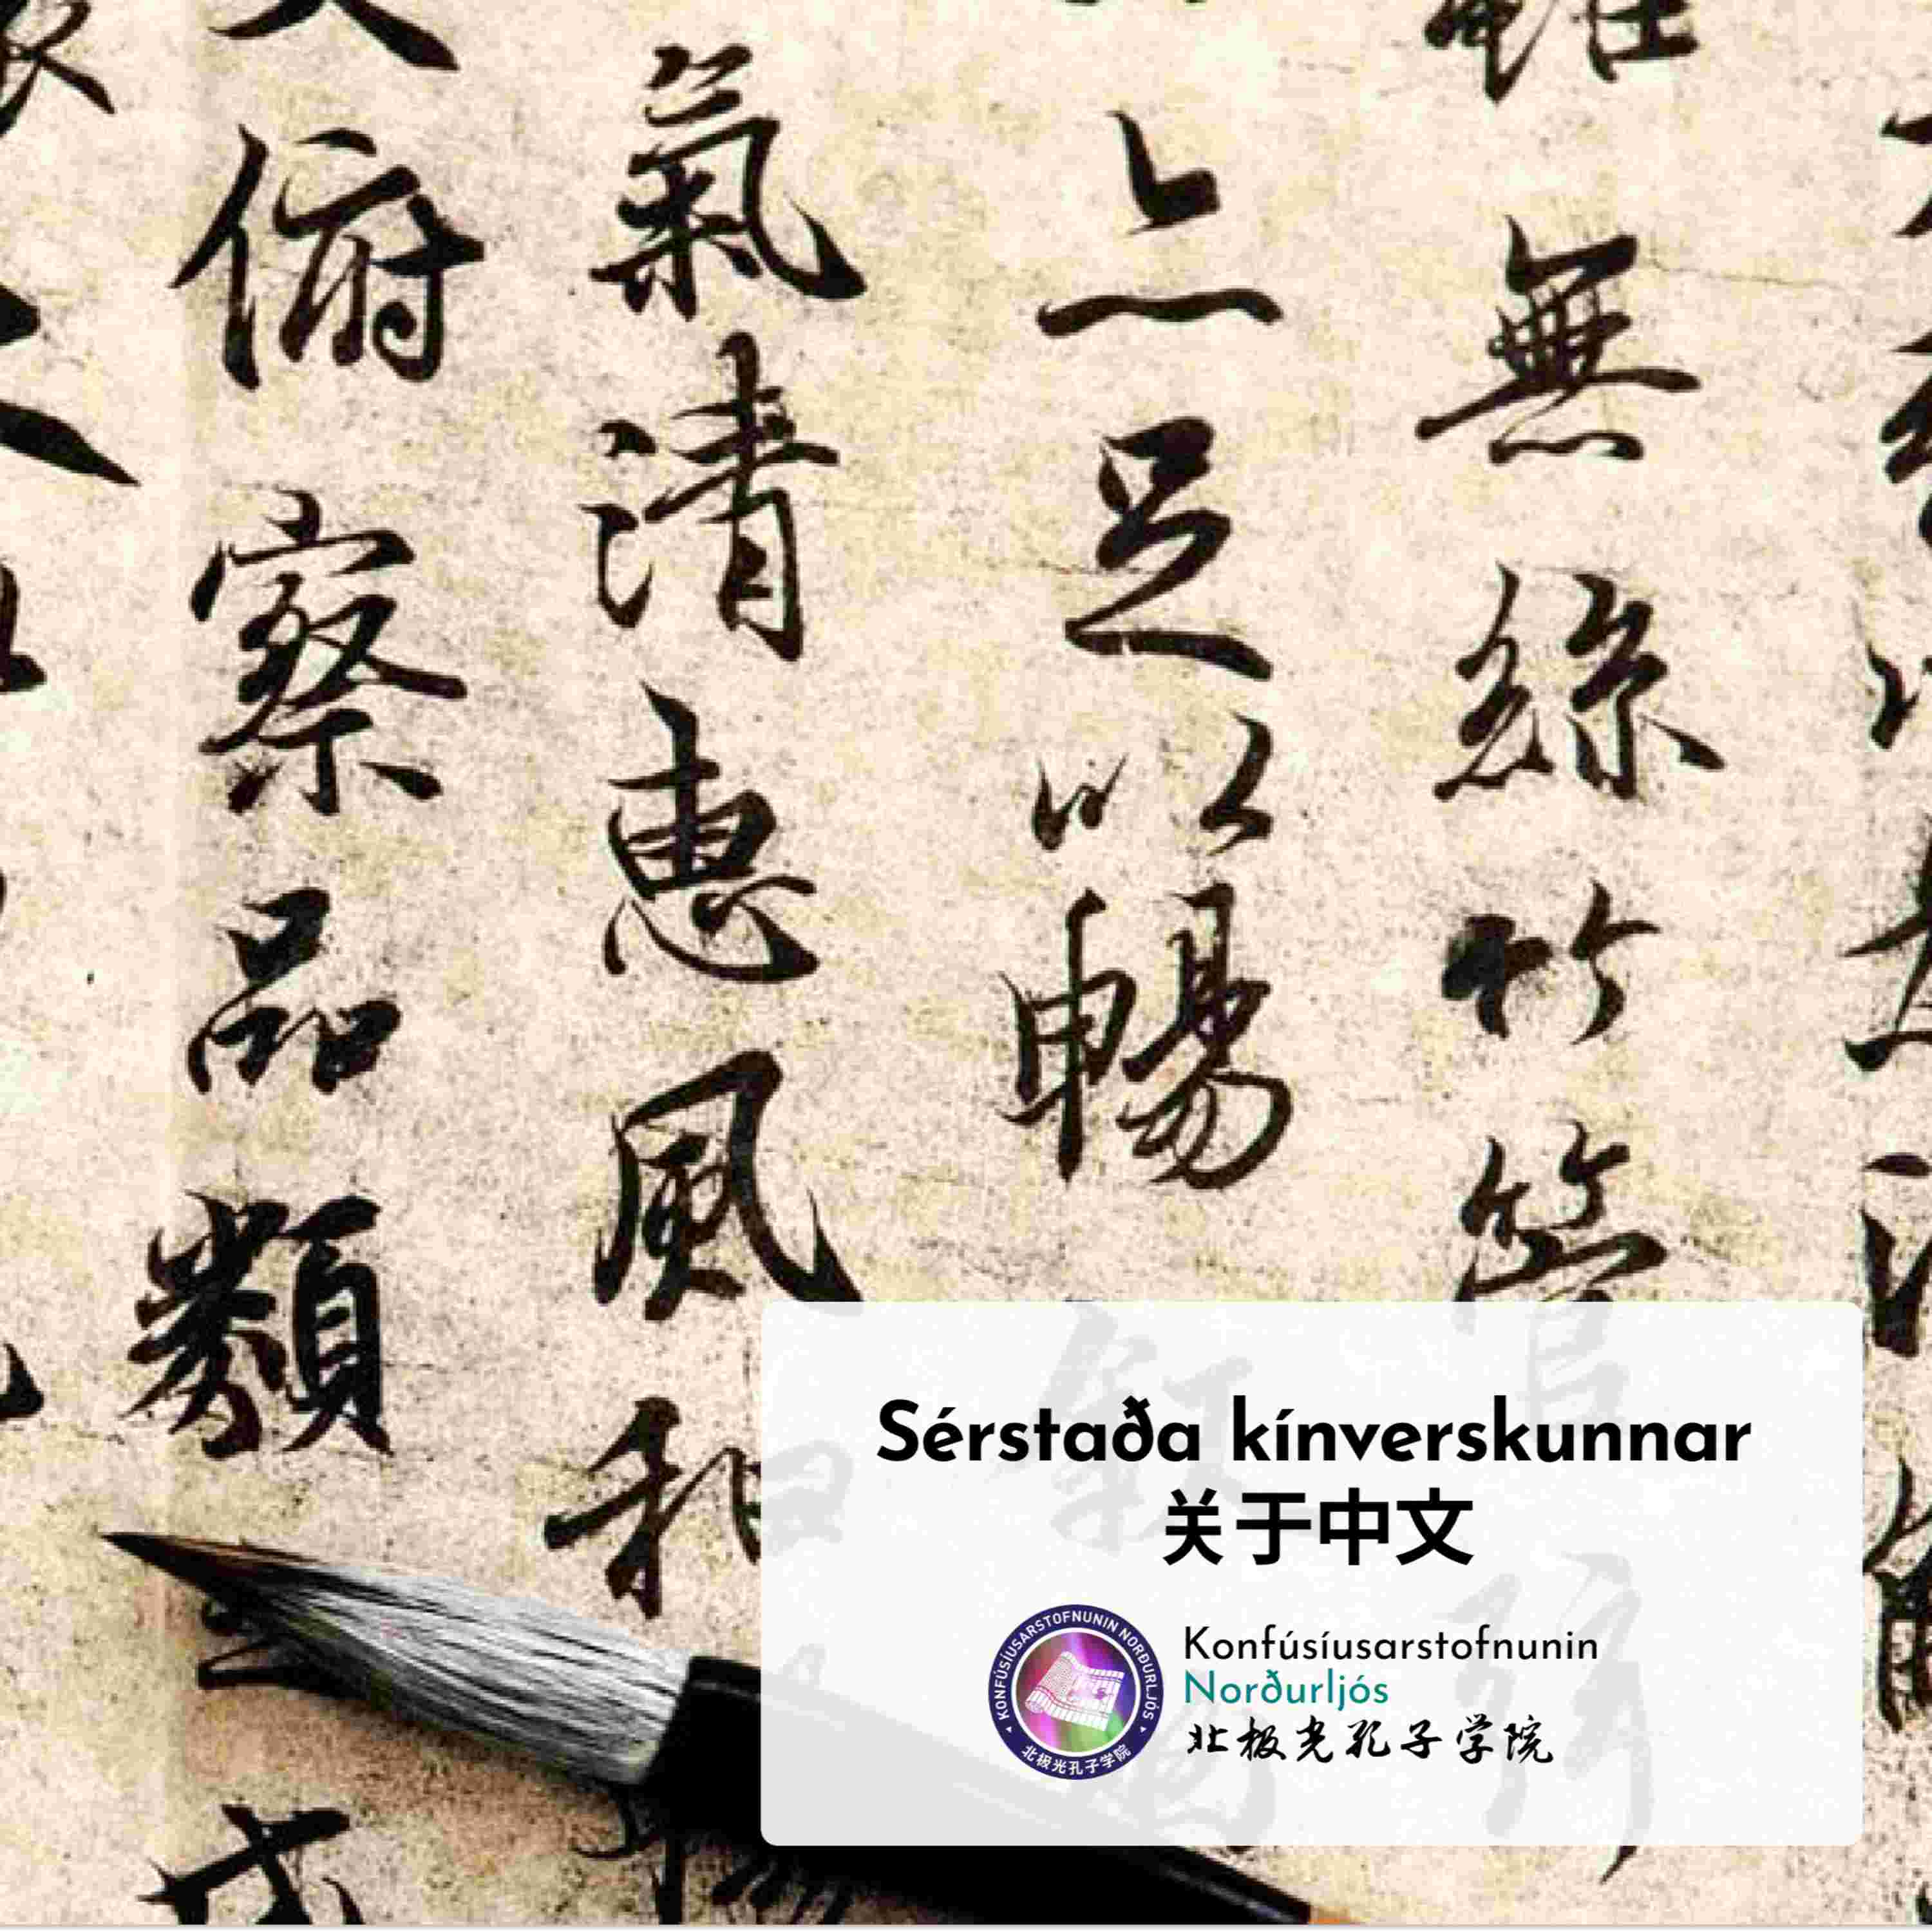 無絲竹管弦
亦足以暢敘幽
氣清惠風和
俯察品類之盛
Sérstaða kínverskunnar
关于中文
KONFÚSÍUSARSTOFNUNIN NORÐURLJÓS
北极光孔子学院
Konfúsíusarstofnunin
Norðurljós
北极光孔子学院